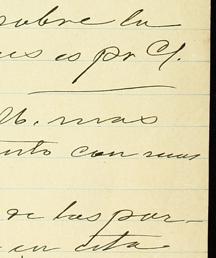 sobre la
es pr Cl.
M. mas
con sus
de las par-
en esta